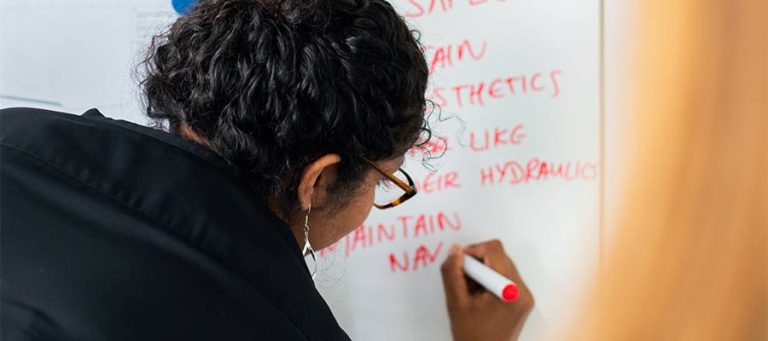 TAIN
ESTHETICS
LIKE
EIR HYDRAULICS
MAINTAIN
NAV